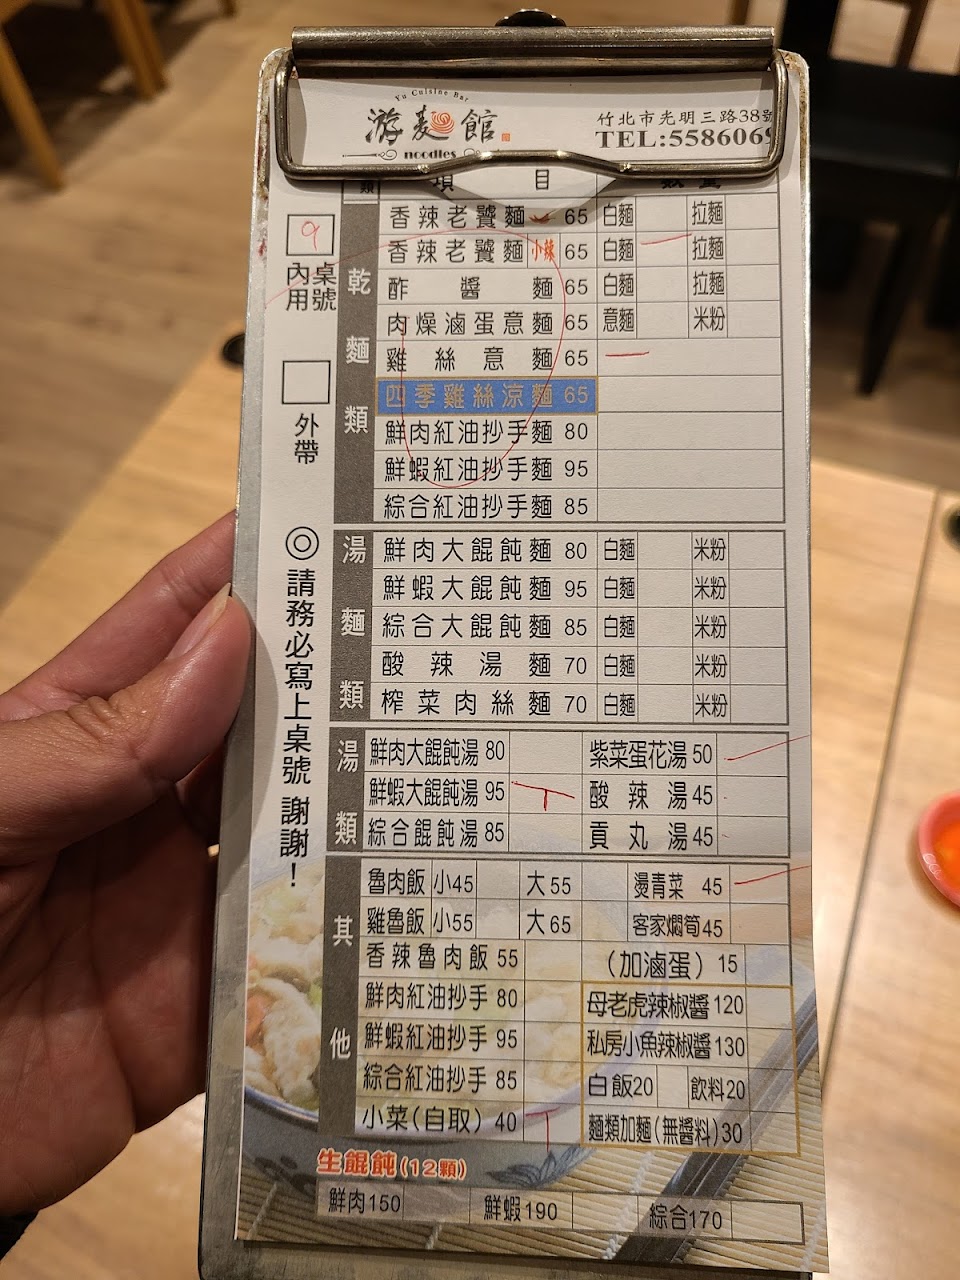 Yu Cuisine Bar
游麵館
noodles
竹北市光明三路38號
TEL:558606
類 項 目 數 量
9
內用 桌號
外帶
◎請務必寫上桌號 謝謝！
乾麵類
香辣老饕麵 65 白麵 拉麵
香辣老饕麵 小辣 65 白麵 拉麵
酢醬麵 65 白麵 拉麵
肉燥滷蛋意麵 65 意麵 米粉
雞絲意麵 65
四季雞絲涼麵 65
鮮肉紅油抄手麵 80
鮮蝦紅油抄手麵 95
綜合紅油抄手麵 85
湯麵類
鮮肉大餛飩麵 80 白麵 米粉
鮮蝦大餛飩麵 95 白麵 米粉
綜合大餛飩麵 85 白麵 米粉
酸辣湯麵 70 白麵 米粉
榨菜肉絲麵 70 白麵 米粉
湯類
鮮肉大餛飩湯 80 紫菜蛋花湯 50
鮮蝦大餛飩湯 95 酸辣湯 45
綜合餛飩湯 85 貢丸湯 45
其他
魯肉飯 小45 大55 燙青菜 45
雞魯飯 小55 大65 客家燜筍 45
香辣魯肉飯 55 (加滷蛋) 15
鮮肉紅油抄手 80 母老虎辣椒醬 120
鮮蝦紅油抄手 95 私房小魚辣椒醬 130
綜合紅油抄手 85 白飯20 飲料20
小菜(自取) 40 麵類加麵(無醬料)30
生餛飩(12顆)
鮮肉150 鮮蝦190 綜合170